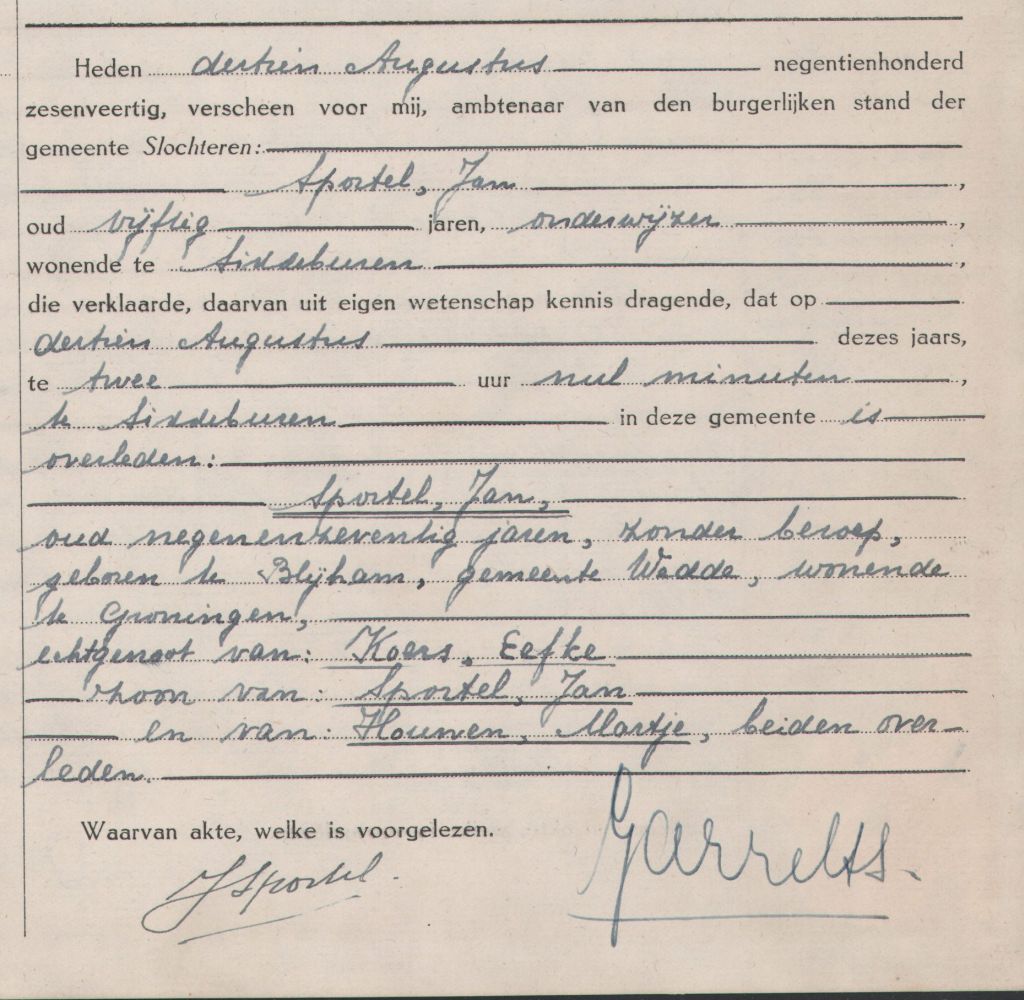 Heden dertien Augustus negentienhonderd
zesenveertig, verscheen voor mij, ambtenaar van den burgerlijken stand der
gemeente Slochteren:
Sportel, Jan ,
oud vijftig jaren, onderwijzer ,
wonende te Siddeburen ,
die verklaarde, daarvan uit eigen wetenschap kennis dragende, dat op
dertien Augustus dezes jaars,
te twee uur nul minuten ,
te Siddeburen in deze gemeente is
overleden:
Sportel, Jan,
oud negenenzeventig jaren, zonder beroep,
geboren te Blijham, gemeente Wedde, wonende
te Groningen,
echtgenoot van: Koers, Eefke
zoon van: Sportel, Jan
en van: Houwen, Martje, beiden over-
leden.
Waarvan akte, welke is voorgelezen.
J Sportel.
Garrelts.